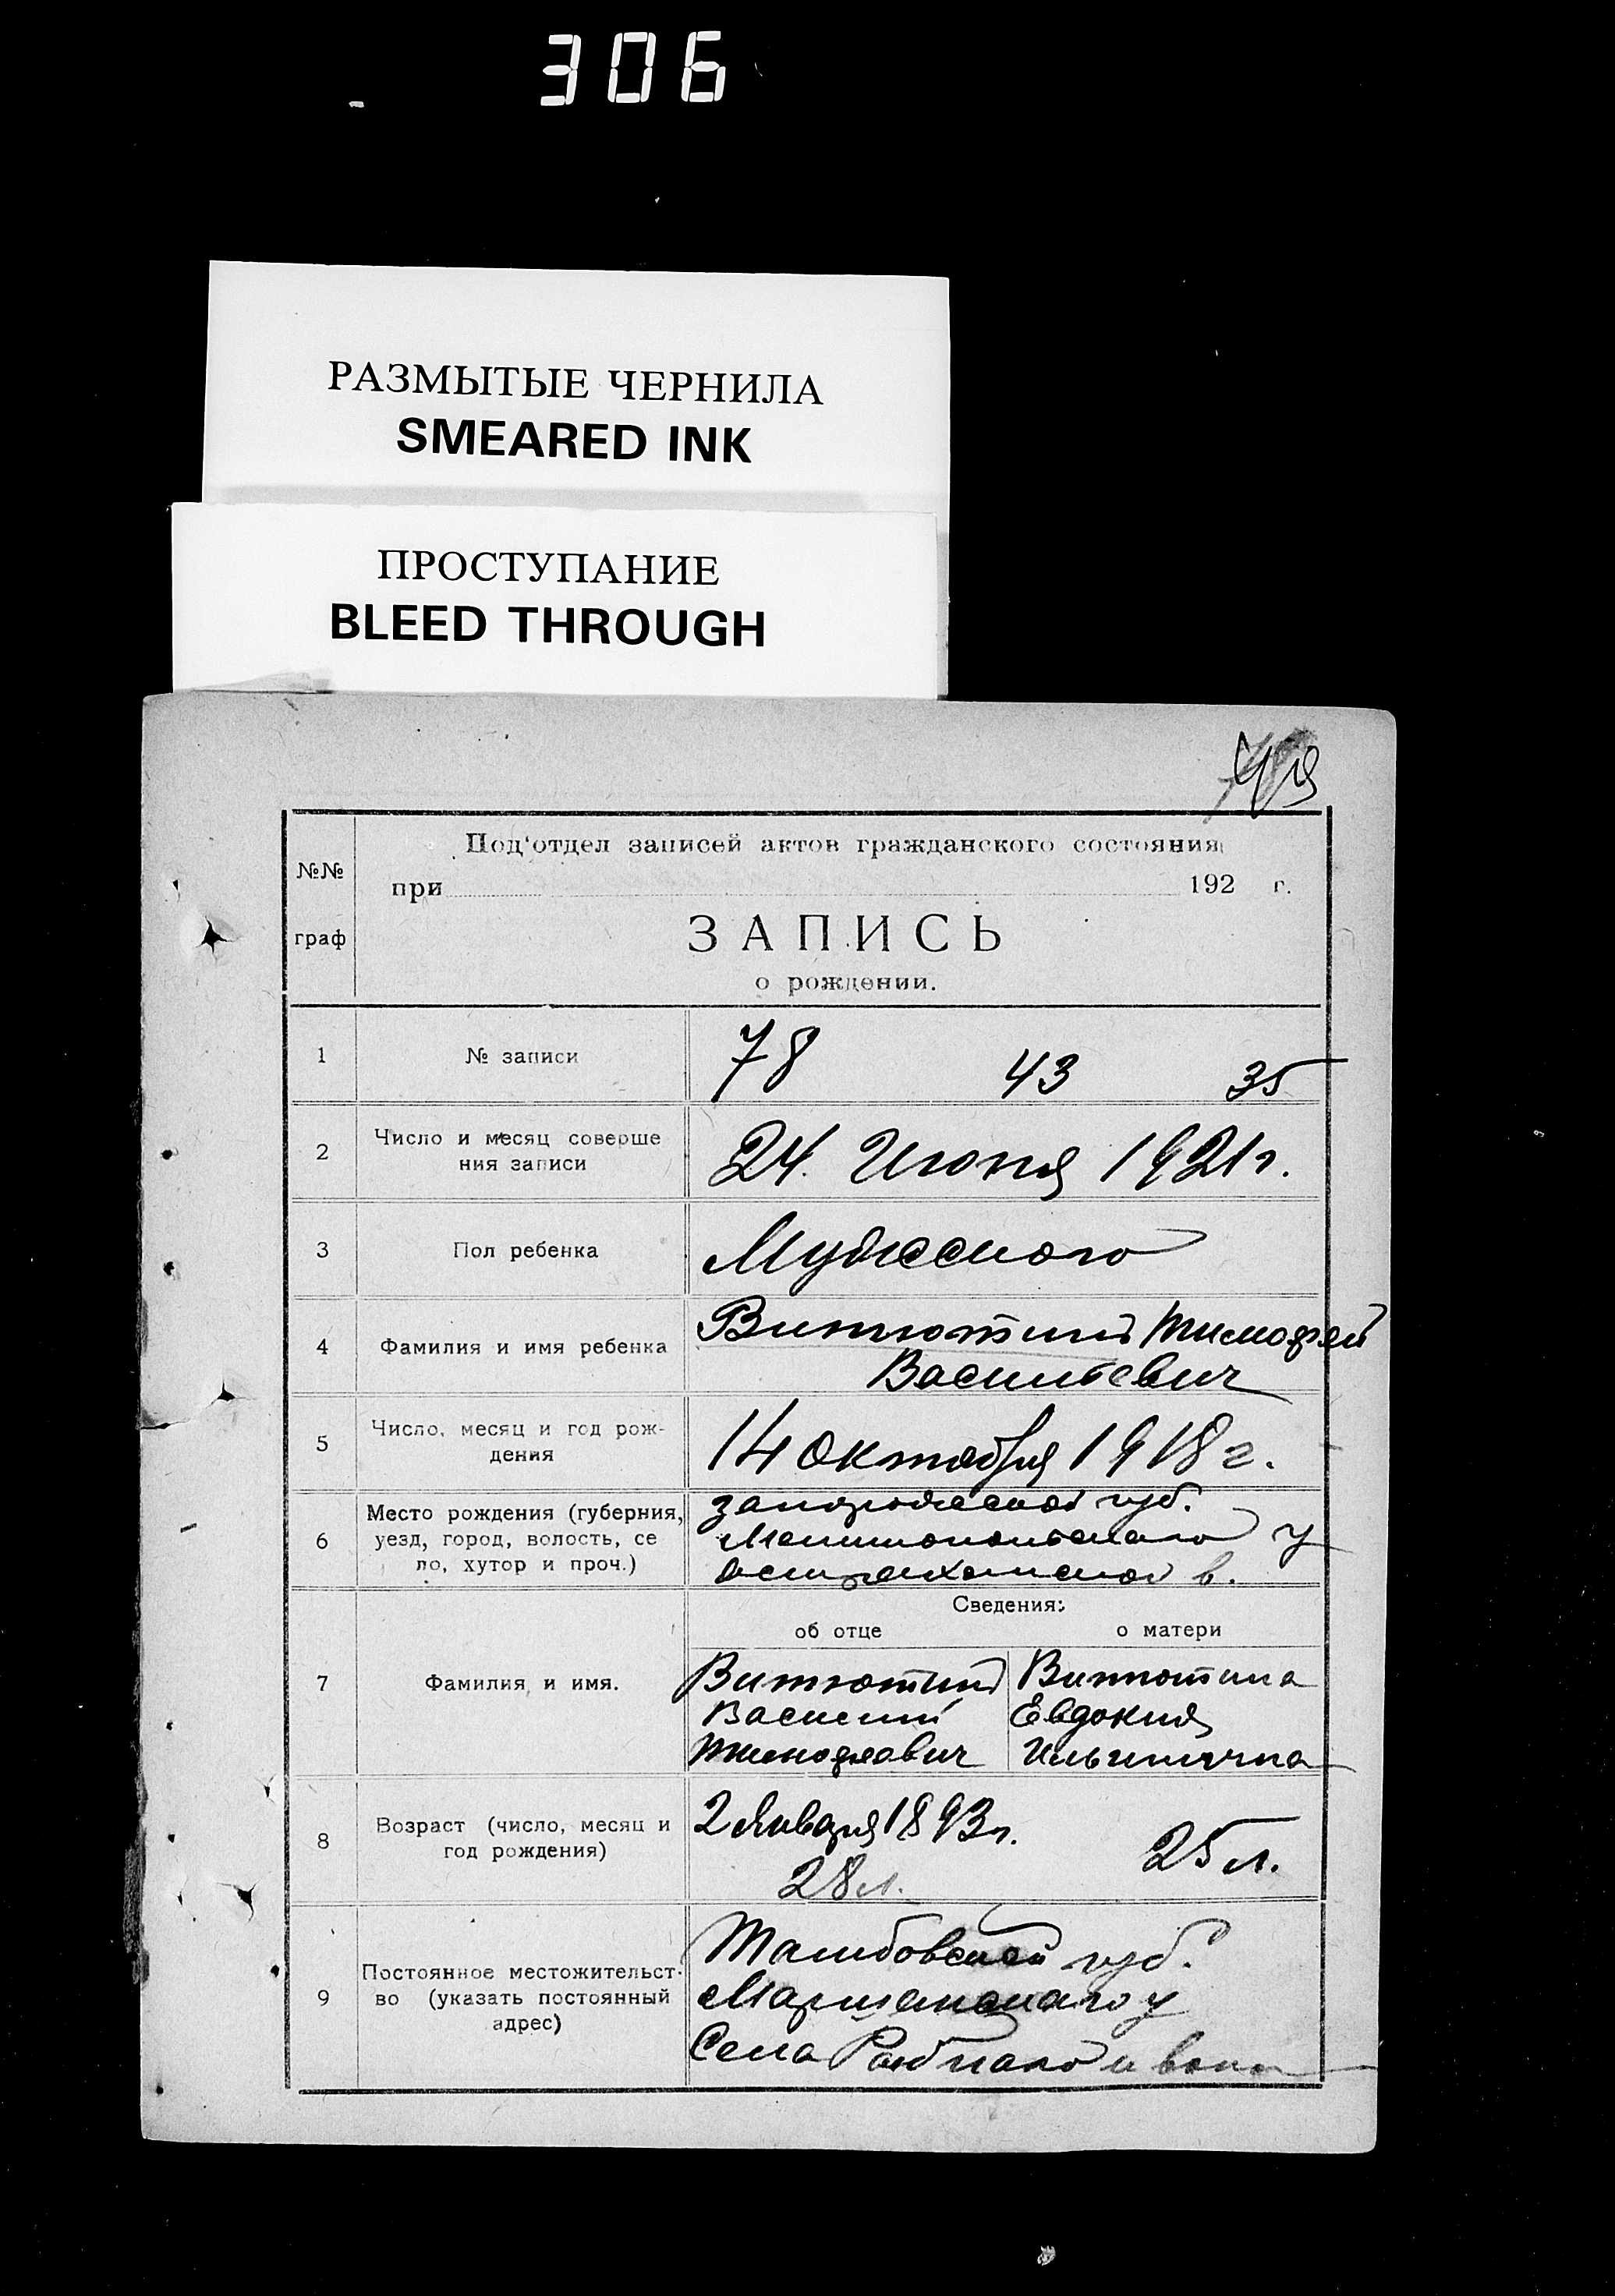 306
РАЗМЫТЫЕ ЧЕРНИЛА
SMEARED INK
ПРОСТУПАНИЕ
BLEED THROUGH
Под'отдел записей актов гражданского состояния
№№
при 192 г.
граф
ЗАПИСЬ
о рождении.
1 № записи 78 43 35
2 Число и месяц соверше
ния записи
24. Июня 1921 г.
3 Пол ребенка Мужескаго
4 Фамилия и имя ребенка
Витютин Тимофей
Васильевич
5 Число, месяц и год рож-
дения
14 октября 1918 г.
6 Место рождения (губерния,
уезд, город, волость, се
ло, хутор и проч.)
запорожской губ.
Мелитопольскаго у
Астраханской в.
Сведения:
об отце о матери
7 Фамилия и имя.
Витютин Витютина
Василий Евдокия
Тимофеевич Ильинична
8 Возраст (число, месяц и
год рождения)
2 Января 1893 г.
28 л. 25 л.
9 Постоянное местожительст-
во (указать постоянный
адрес)
Тамбовской губ.
Моршанскаго у
Села